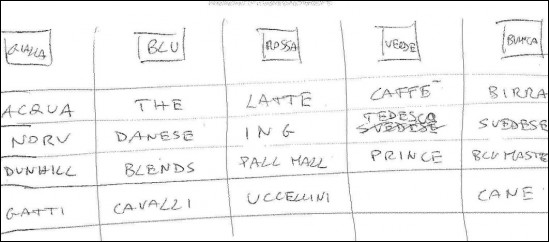 GIALLA BLU ROSSA VERDE BIANCA
ACQUA THE LATTE CAFFE BIRRA
TEDESCO
NORV DANESE ING SVEDESE SVEDESE
DUNHILL BLENDS PALL MALL PRINCE BLUMASTE
GATTI CAVALLI UCCELLINI CANE